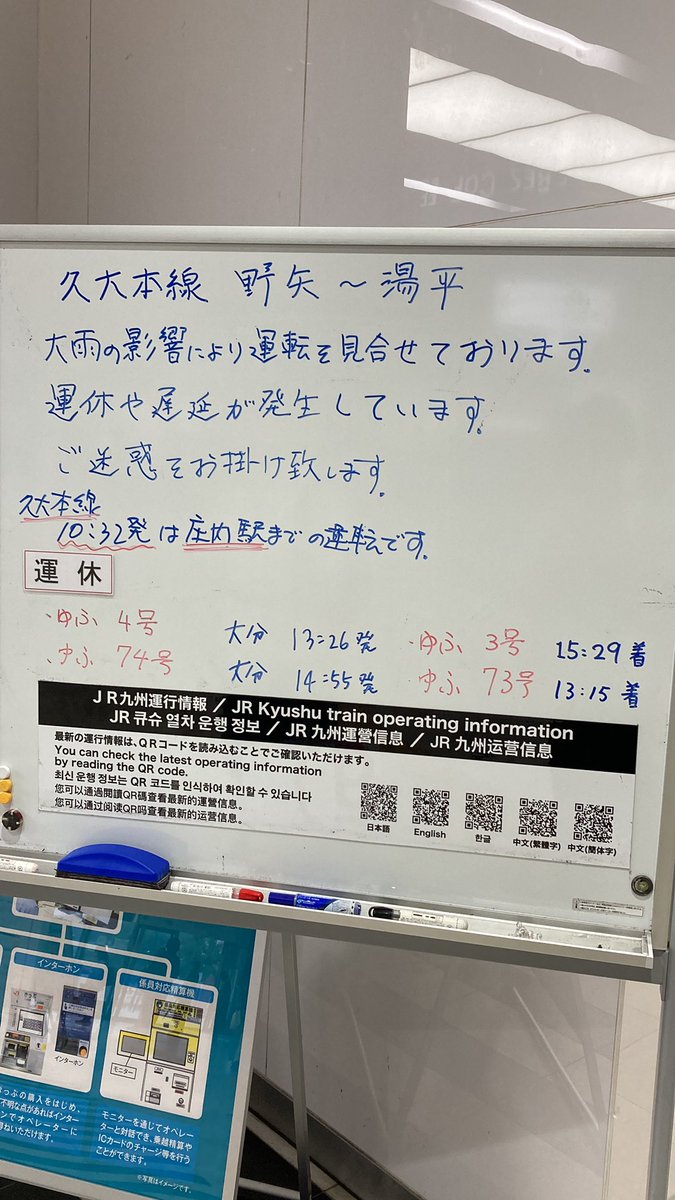 久大本線 野矢～湯平
大雨の影響により運転を見合せております。
運休や遅延が発生しています。
ご迷惑をお掛け致します。
久大本線
10:32発は庄内駅までの運転です。
運休
・ゆふ 4号 大分 13:26発 ・ゆふ 3号 15:29着
・ゆふ 74号 大分 14:55発 ・ゆふ 73号 13:15着
JR九州運行情報 / JR Kyushu train operating information
JR 큐슈 열차 운행 정보 / JR 九州運營信息 / JR 九州运营信息
最新の運行情報は、QRコードを読み込むことでご確認いただけます。
You can check the latest operating information
by reading the QR code.
최신 운행 정보는 QR 코드를 인식하여 확인할 수 있습니다
您可以通過閱讀QR碼查看最新的運營信息。
您可以通过阅读QR吗查看最新的运营信息。
日本語 English 한글 中文(繁體字) 中文(簡体字)
インターホン
インターホン
っぷの購入をはじめ、
不明な点があればインター
ンでオペレーターに
ねいただけます。
係員対応精算機
モニター
モニターを通じてオペレー
ターと対話でき、乗越精算や
ICカードのチャージ等を行う
ことができます。
※写真はイメージです。